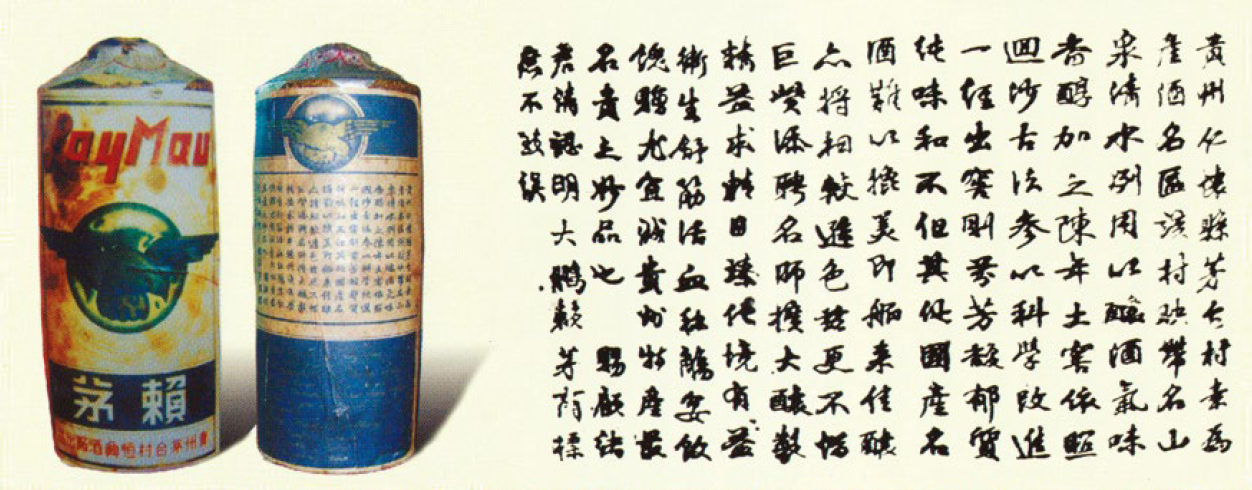 Lay Mau
賴茅
貴州茅台村恒興酒廠
貴州仁懷縣茅台村素為
產酒名區該村映帶名山
泉清水冽用以釀酒氣味
香醇加之陳年土窖依照
迴沙古法參以科學改進
一經出窖則芬芳馥郁質
純味和不但其他國產名
酒難以擅美即舶來佳釀
亦將相較遜色茲更不惜
巨貲添聘名師擴大釀製
精益求精日臻佳境有益
衛生舒筋活血飲
餽贈尤宜誠貴州特產最
名貴之妙品也 賜顧諸
君請認明大鵬賴茅商標
庶不致誤